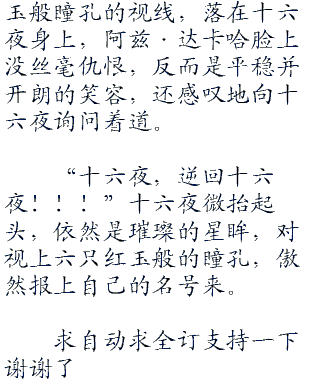 玉般瞳孔的视线，落在十六
夜身上，阿兹·达卡哈脸上
没丝毫仇恨，反而是平稳并
开朗的笑容，还感叹地向十
六夜询问着道。
“十六夜，逆回十六
夜！！！”十六夜微抬起
头，依然是璀璨的星眸，对
视上六只红玉般的瞳孔，傲
然报上自己的名号来。
求自动求全订支持一下
谢谢了